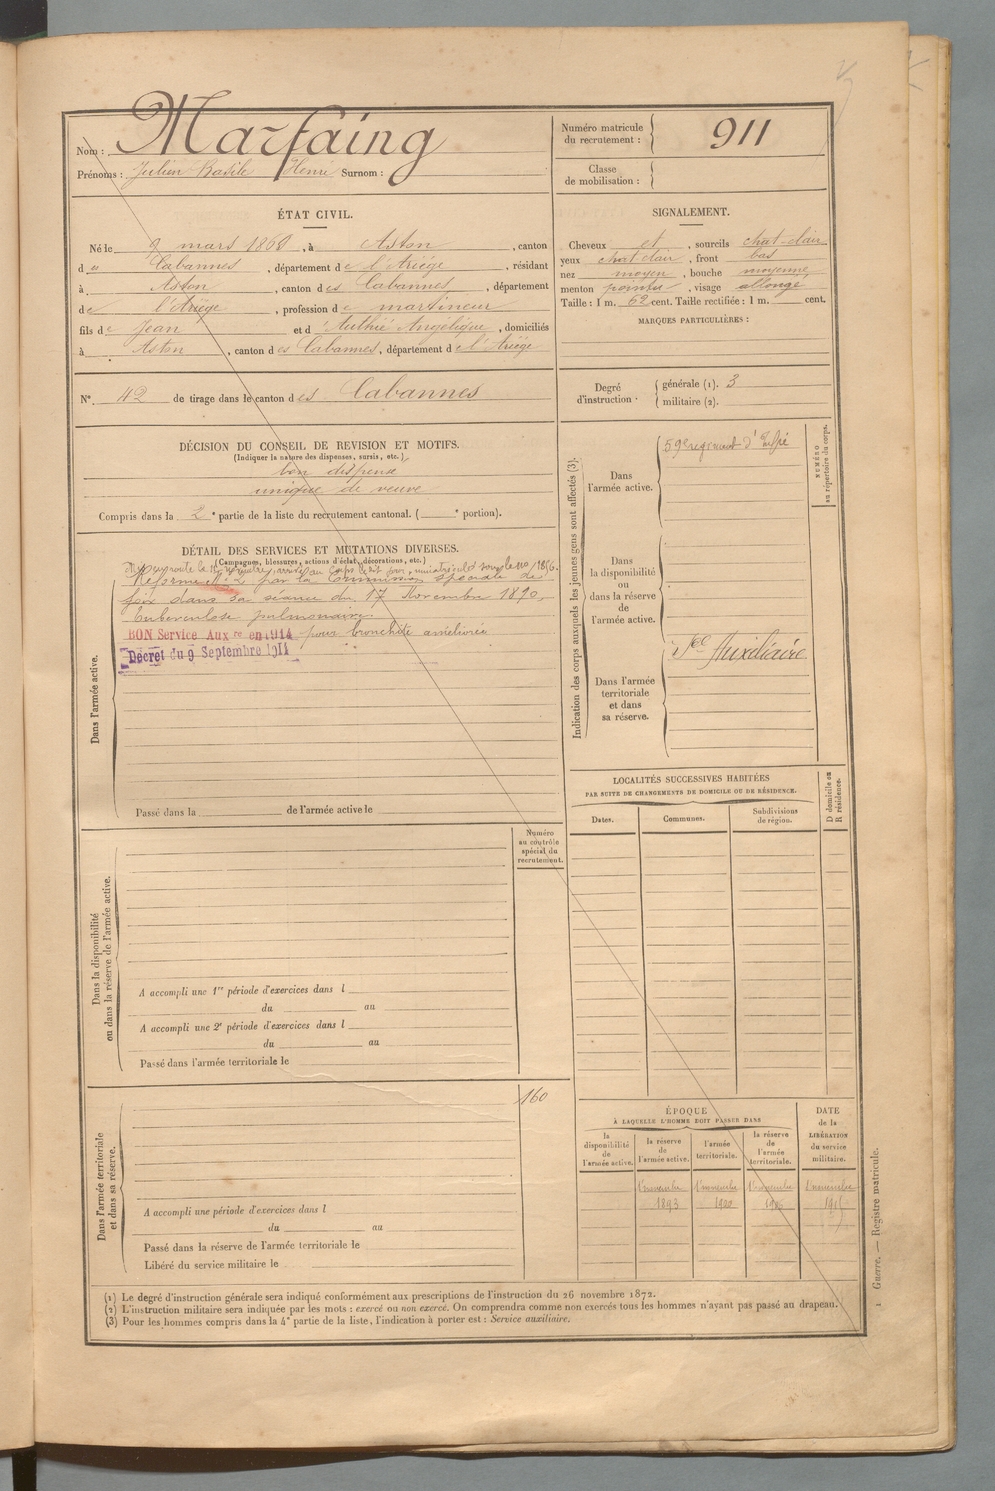 Nom : Marfaing
Prénoms : Julien Basile Henri Surnom :
Numéro matricule
du recrutement : 911
Classe
de mobilisation :
ÉTAT CIVIL.
Né le 9 mars 1868, à Aston, canton
d es Cabannes, département de l'Ariège, résidant
à Aston, canton des Cabannes, département
de l'Ariège, profession de martineur
fils de Jean et d'Authié Angélique, domiciliés
à Aston, canton des Cabannes, département de l'Ariège
N° 42 de tirage dans le canton des Cabannes
SIGNALEMENT.
Cheveux et, sourcils chat-clair
yeux chat clair, front bas
nez moyen, bouche moyenne
menton pointu, visage allongé
Taille : 1 m. 62 cent. Taille rectifiée : 1 m. cent.
MARQUES PARTICULIÈRES :
Degré
d'instruction
générale (1). 3
militaire (2).
DÉCISION DU CONSEIL DE REVISION ET MOTIFS.
(Indiquer la nature des dispenses, sursis, etc.)
bon dispensé
unique de veuve
Compris dans la 2e partie de la liste du recrutement cantonal. ( e portion).
DÉTAIL DES SERVICES ET MUTATIONS DIVERSES.
(Campagnes, blessures, actions d'éclat, décorations, etc.)
Réformé N° 2 par la Commission spéciale de
foix dans sa séance du 17 Novembre 1890,
tuberculose pulmonaire.
BON Service Auxre en 1914 pour bronchite améliorée
Décret du 9 Septembre 1914
Dans l'armée active.
Passé dans la de l'armée active le
Indication des corps auxquels les jeunes gens sont affectés (3).
NUMÉRO
au répertoire du corps.
Dans
l'armée active.
59e régiment d'Infie
Dans
la disponibilité
ou
dans la réserve
de
l'armée active.
Dans l'armée
territoriale
et dans
sa réserve.
Sce Auxiliaire
LOCALITÉS SUCCESSIVES HABITÉES
PAR SUITE DE CHANGEMENTS DE DOMICILE OU DE RÉSIDENCE.
Dates.
Communes.
Subdivisions
de région.
D domicile ou
R résidence.
Numéro
au contrôle
spécial du
recrutement.
Dans la disponibilité
ou dans la réserve de l'armée active.
A accompli une 1re période d'exercices dans l
du au
A accompli une 2e période d'exercices dans l
du au
Passé dans l'armée territoriale le
160
Dans l'armée territoriale
et dans sa réserve.
A accompli une période d'exercices dans l
du au
Passé dans la réserve de l'armée territoriale le
Libéré du service militaire le
ÉPOQUE
À LAQUELLE L'HOMME DOIT PASSER DANS
la
disponibilité
de
l'armée active.
la réserve
de
l'armée active.
l'armée
territoriale.
la réserve
de
l'armée
territoriale.
DATE
de la
LIBÉRATION
du service
militaire.
1er novembre 1er novembre 1er novembre 1er novembre
1893
(1) Le degré d'instruction générale sera indiqué conformément aux prescriptions de l'instruction du 26 novembre 1872.
(2) L'instruction militaire sera indiquée par les mots : exercé ou non exercé. On comprendra comme non exercés tous les hommes n'ayant pas passé au drapeau.
(3) Pour les hommes compris dans la 4e partie de la liste, l'indication à porter est : Service auxiliaire.
1 Guerre. — Registre matricule.